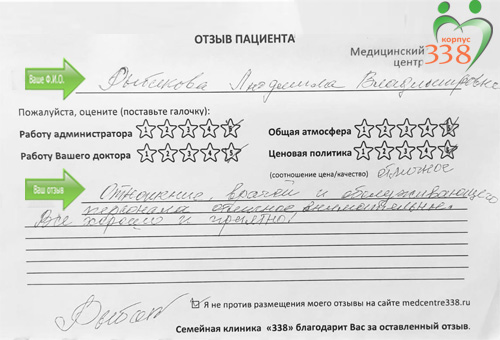 ОТЗЫВ ПАЦИЕНТА
корпус
Медицинский центр 338
Ваше Ф.И.О. Людмила Владимировна
Пожалуйста, оцените (поставьте галочку):
Работу администратора 1 2 3 4 5 Общая атмосфера 1 2 3 4 5
Работу Вашего доктора 1 2 3 4 5 Ценовая политика 1 2 3 4 5
(соотношение цена/качество) отличное
Ваш отзыв Отношение врачей и обслуживающего
персонала внимательные.
Все хорошо и приятно!
Я не против размещения моего отзывы на сайте medcentre338.ru
Семейная клиника «338» благодарит Вас за оставленный отзыв.